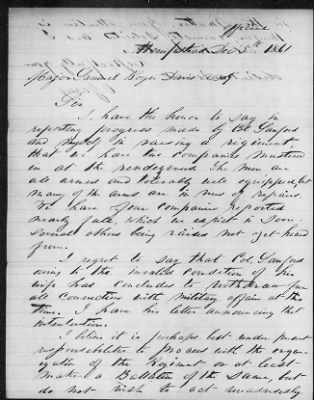 Office
Hempstead Dec 5th 1861
Major Samuel Boyer Davis A.A.G.
Sir
I have the honor to say in
reporting progress made by Col Sanford
and myself in raising a regiment
that we have two companies mustered
in at the rendezvous. The men are
all armed and tolerably well equipped, but
many of the arms are in need of repairs.
We have four companies reported
nearly full, which we expect in soon.
Several others being raised not yet heard
from.
I regret to say that Col. Sanford
owing to the invalid condition of his
wife has concluded to withdraw from
all connection with military affairs at this
time. I have his letter announcing that
intention.
I believe it is perhaps best under present
responsibilities to proceed with the organi-
zation of the Regiment or at least
make a Battalion of the Same, but
do not wish to act unadvisedly